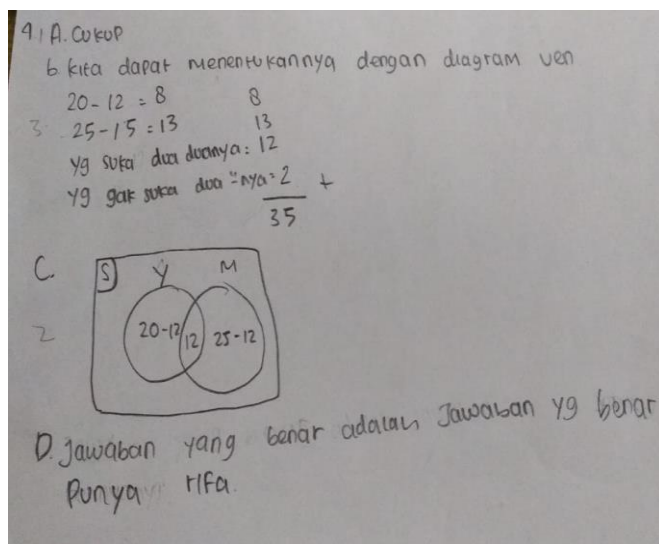 9. A. Cukup
b. kita dapat menentukannya dengan diagram ven
20 - 12 = 8 8
3 25 - 15 = 13 13
yg suka dua duanya = 12
yg gak suka dua "-nya = 2 +
35
C. S Y M
2 20-12 12 25-12
D. Jawaban yang benar adalah Jawaban yg benar
Punya rifa.